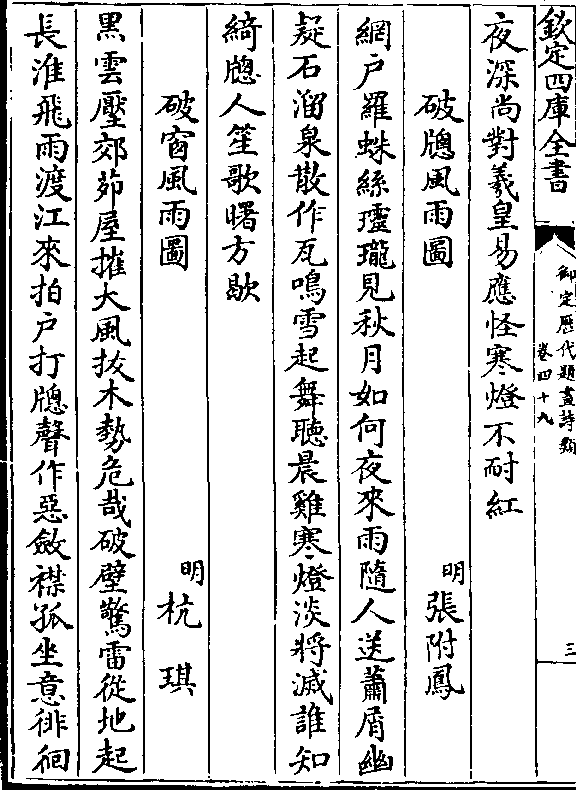 欽定四庫全書
御定歷代題畫詩類
卷四十九
三
夜深尚對羲皇易應怪寒燈不耐紅
破牕風雨圖
明張附鳳
網戶羅蛛絲瓏瓏見秋月如何夜來雨隨人送蕭屑幽
疑石溜泉散作瓦鳴雪起舞聽晨雞寒燈淡將滅誰知
綺牕人笙歌曙方歇
破窗風雨圖
明杭琪
黑雲壓郊茆屋摧大風拔木勢危哉破壁驚雷從地起
長淮飛雨渡江來拍戶打牕聲作惡斂襟孤坐意徘徊